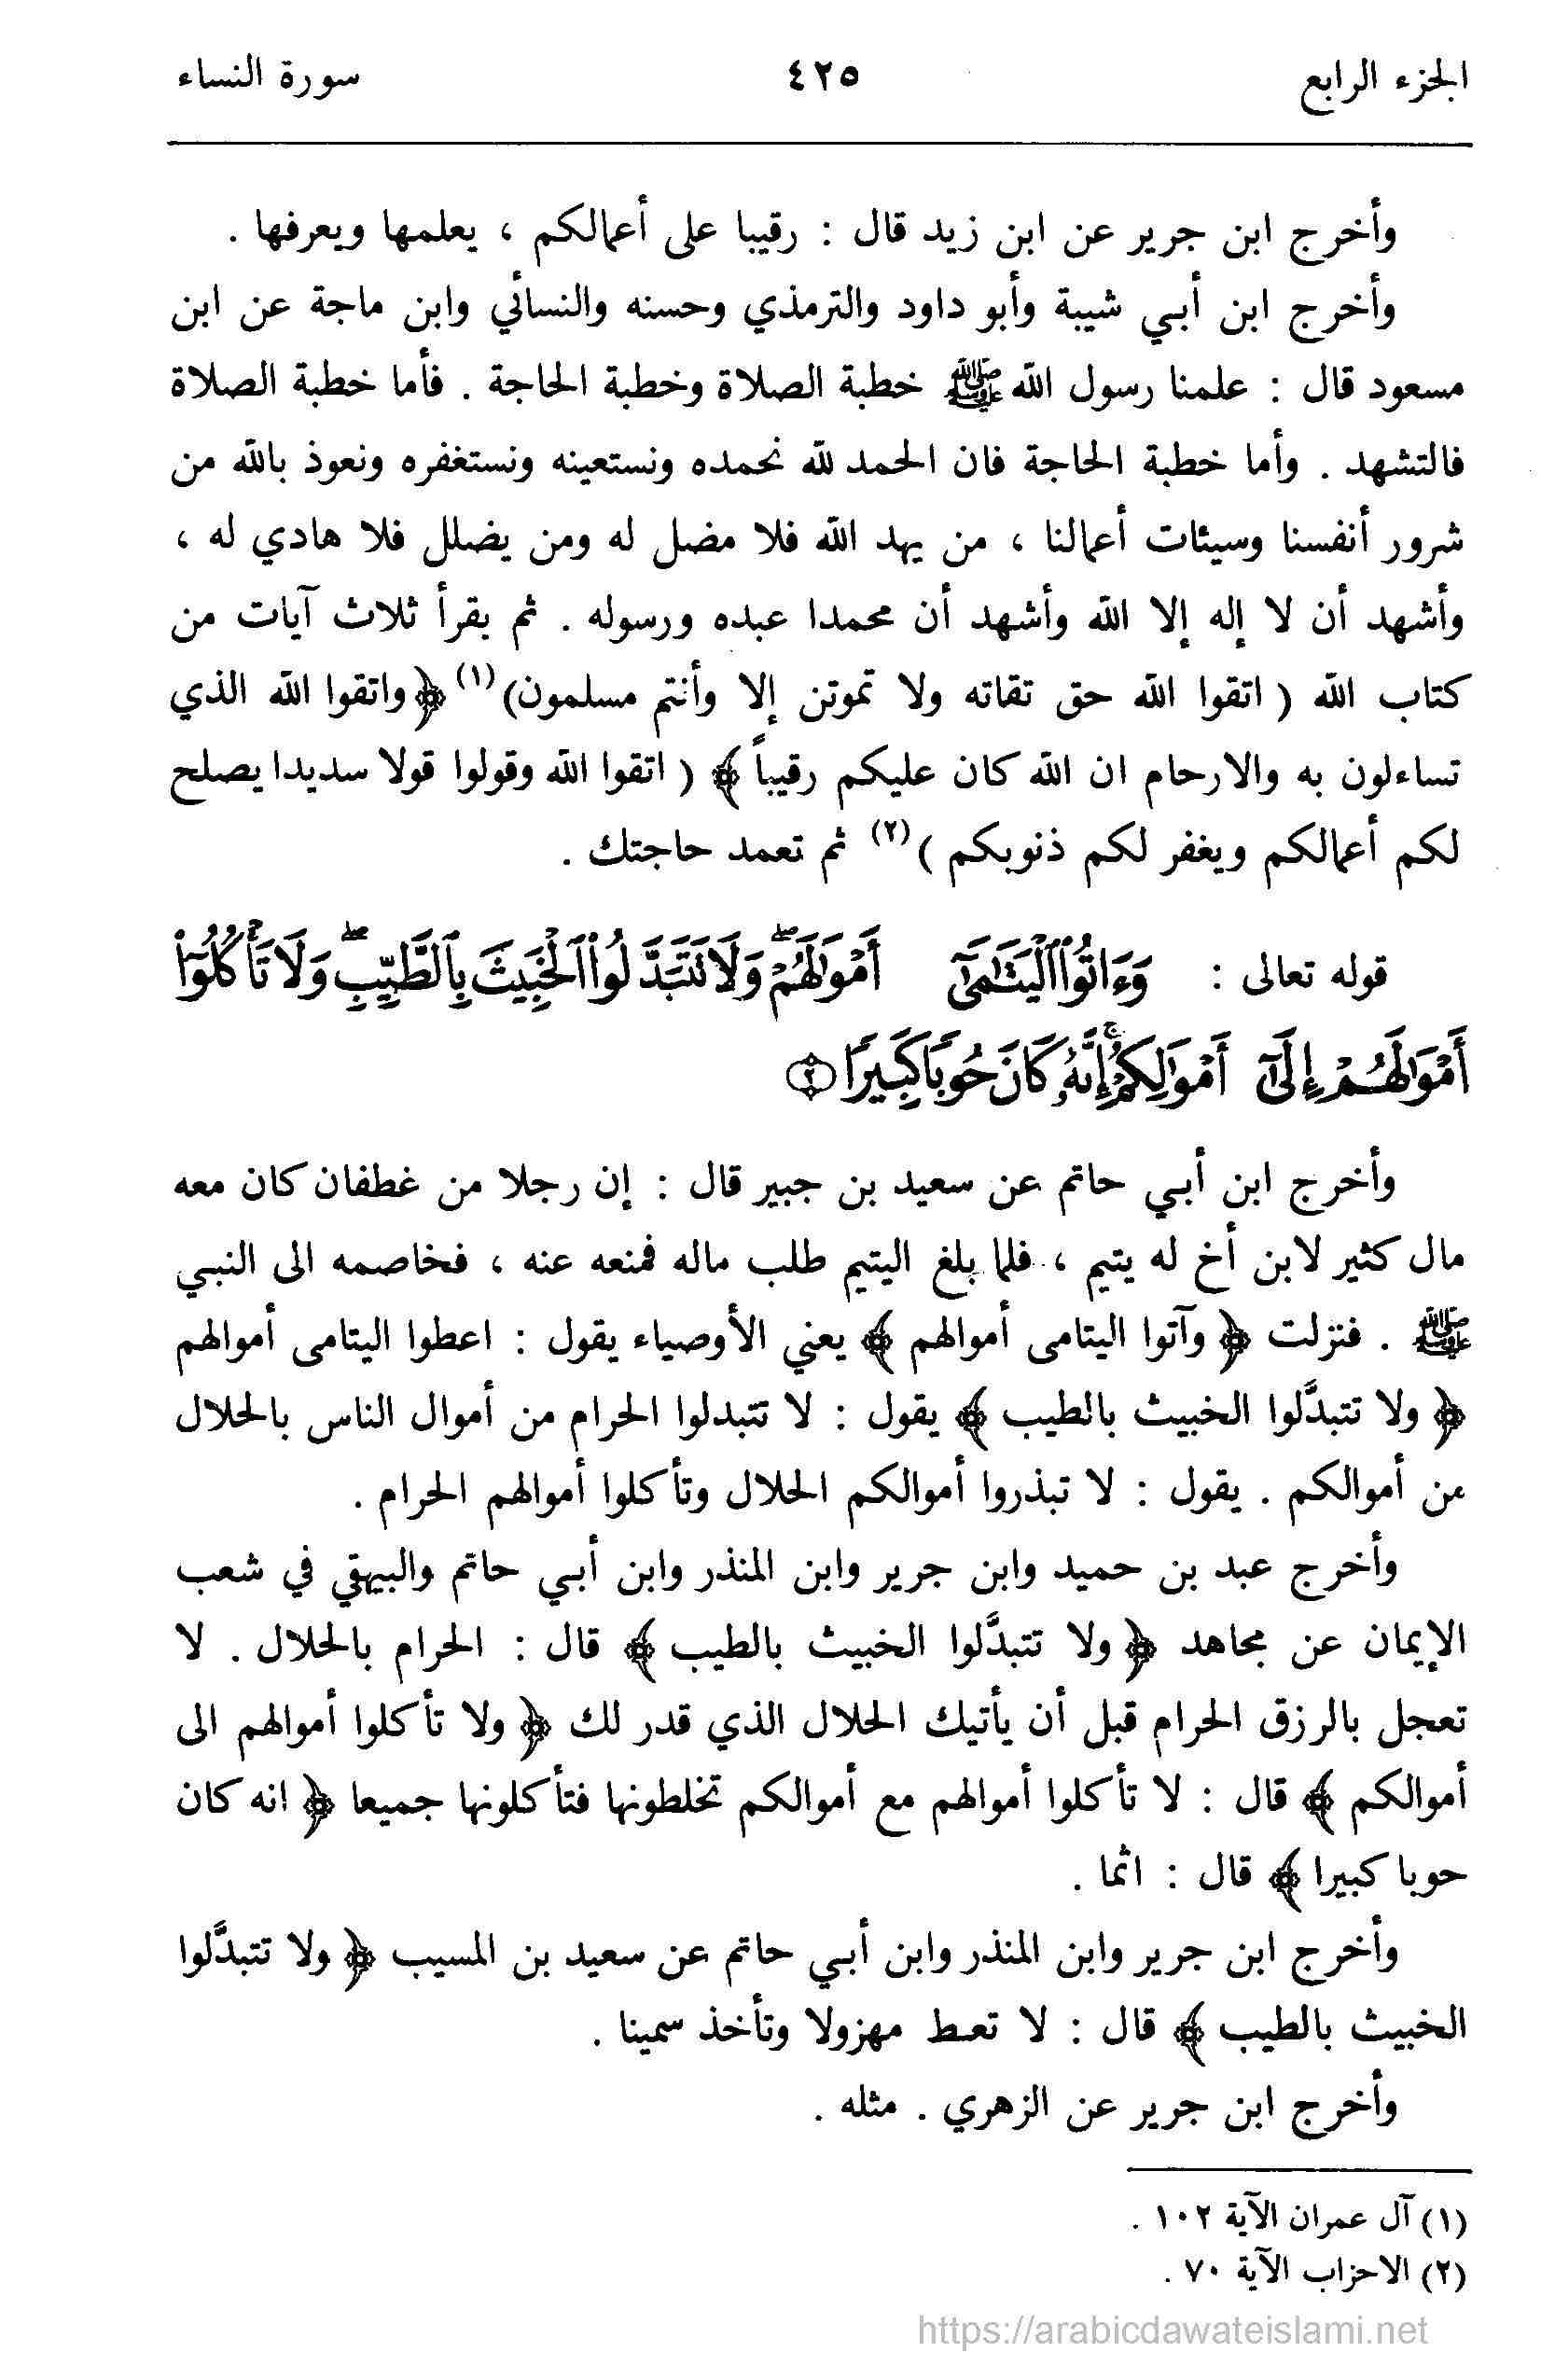 الجزء الرابع ٤٢٥ سورة النساء
وأخرج ابن جرير عن ابن زيد قال : رقيبا على أعمالكم ، يعلمها ويعرفها .
وأخرج ابن أبي شيبة وأبو داود والترمذي وحسنه والنسائي وابن ماجة عن ابن
مسعود قال : علمنا رسول الله ﷺ خطبة الصلاة وخطبة الحاجة . فأما خطبة الصلاة
فالتشهد . وأما خطبة الحاجة فان الحمد لله نحمده ونستعينه ونستغفره ونعوذ بالله من
شرور أنفسنا وسيئات أعمالنا ، من يهد الله فلا مضل له ومن يضلل فلا هادي له ،
وأشهد أن لا إله إلا الله وأشهد أن محمدا عبده ورسوله . ثم يقرأ ثلاث آيات من
كتاب الله ( اتقوا الله حق تقاته ولا تموتن إلا وأنتم مسلمون)(١) ﴿واتقوا الله الذي
تساءلون به والارحام ان الله كان عليكم رقيباً ﴾ ( اتقوا الله وقولوا قولا سديدا يصلح
لكم أعمالكم ويغفر لكم ذنوبكم )(٢) ثم تعمد حاجتك .
قوله تعالى : وَءَاتُوا۟ ٱلْيَتَـٰمَىٰٓ أَمْوَٰلَهُمْ ۖ وَلَا تَتَبَدَّلُوا۟ ٱلْخَبِيثَ بِٱلطَّيِّبِ ۖ وَلَا تَأْكُلُوٓا۟
أَمْوَٰلَهُمْ إِلَىٰٓ أَمْوَٰلِكُمْ ۚ إِنَّهُۥ كَانَ حُوبًا كَبِيرًا ٢
وأخرج ابن أبي حاتم عن سعيد بن جبير قال : إن رجلا من غطفان كان معه
مال كثير لابن أخ له يتيم ، فلما بلغ اليتيم طلب ماله فمنعه عنه ، فخاصمه الى النبي
ﷺ . فنزلت ﴿ وآتوا اليتامى أموالهم ﴾ يعني الأوصياء يقول : اعطوا اليتامى أموالهم
﴿ ولا تتبدَّلوا الخبيث بالطيب ﴾ يقول : لا تتبدلوا الحرام من أموال الناس بالحلال
من أموالكم . يقول : لا تبذروا أموالكم الحلال وتأكلوا أموالهم الحرام .
وأخرج عبد بن حميد وابن جرير وابن المنذر وابن أبي حاتم والبيهقي في شعب
الإيمان عن مجاهد ﴿ ولا تتبدَّلوا الخبيث بالطيب ﴾ قال : الحرام بالحلال . لا
تعجل بالرزق الحرام قبل أن يأتيك الحلال الذي قدر لك ﴿ ولا تأكلوا أموالهم الى
أموالكم ﴾ قال : لا تأكلوا أموالهم مع أموالكم تخلطونها فتأكلونها جميعا ﴿ انه كان
حوبا كبيرا ﴾ قال : اثما .
وأخرج ابن جرير وابن المنذر وابن أبي حاتم عن سعيد بن المسيب ﴿ ولا تتبدَّلوا
الخبيث بالطيب ﴾ قال : لا تعط مهزولا وتأخذ سمينا .
وأخرج ابن جرير عن الزهري . مثله .
(١) آل عمران الآية ١٠٢ .
(٢) الاحزاب الآية ٧٠ .
https://arabicdawateislami.net